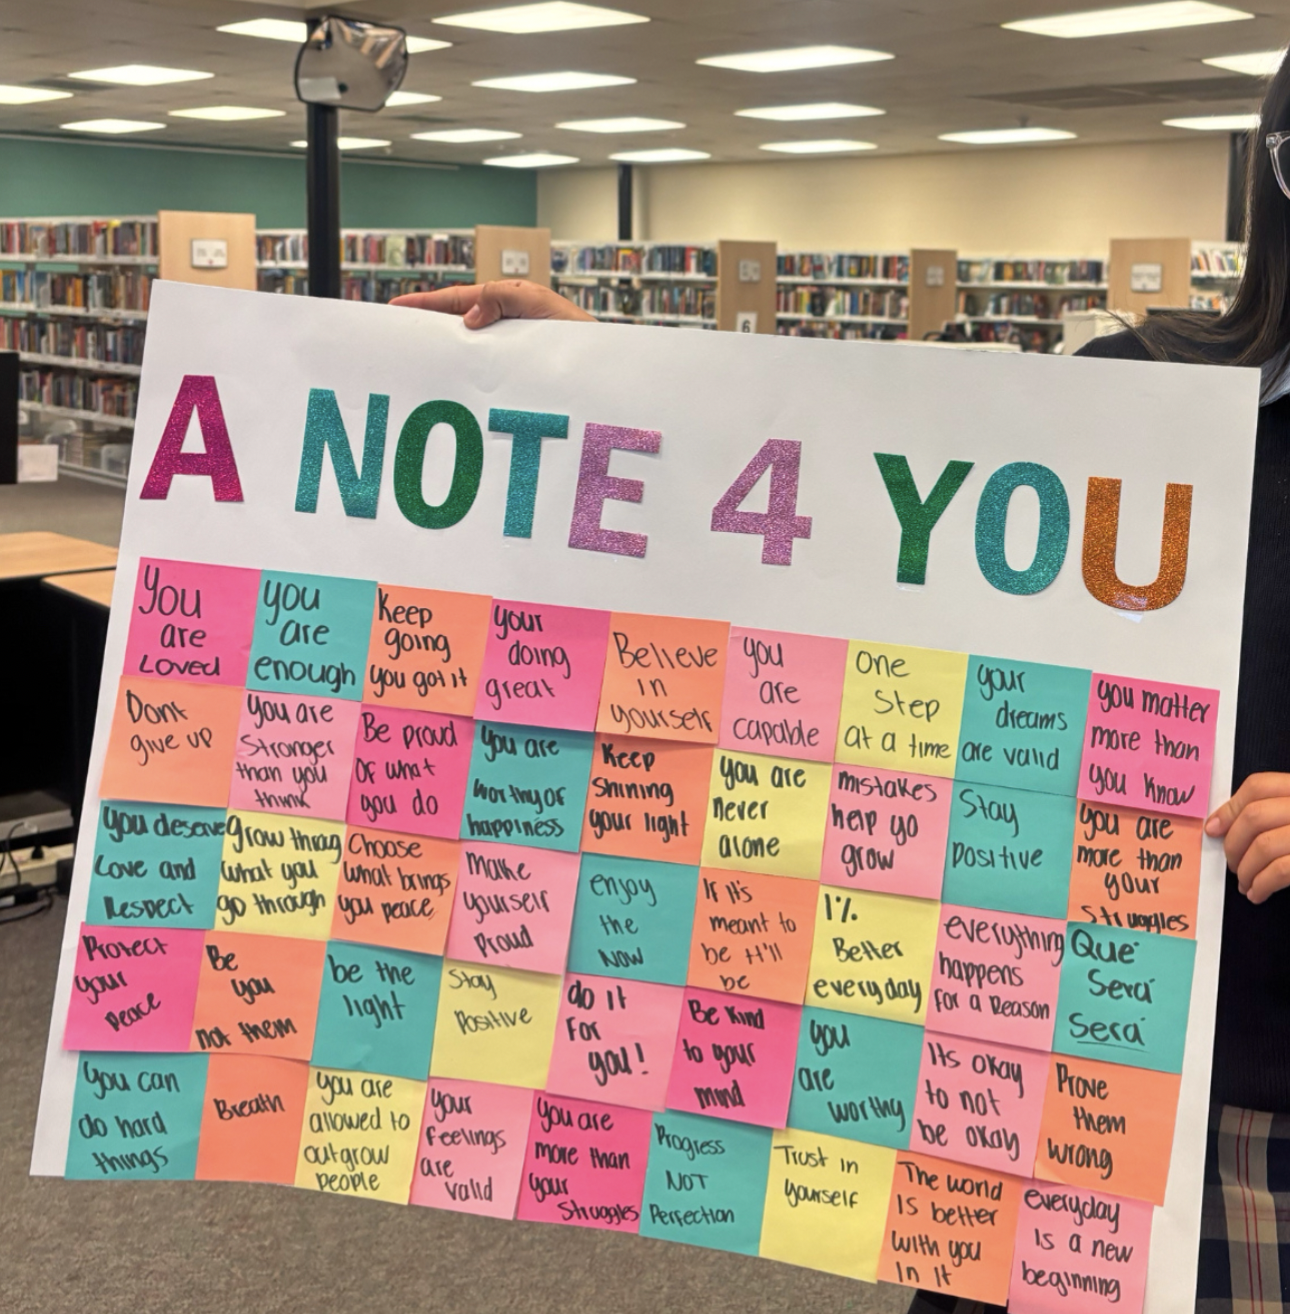 A NOTE 4 YOU
You
are
Loved
you
are
enough
Keep
going
you got it
your
doing
great
Believe
in
yourself
you
are
capable
One
Step
at a time
your
dreams
are valid
you matter
more than
you know
Dont
give up
you are
Stronger
than you
think
Be proud
Of what
you do
you are
worthy of
happiness
Keep
Shining
your light
you are
never
alone
mistakes
help yo
grow
Stay
Positive
you are
more than
your
Struggles
you deserve
Love and
Respect
grow throug
What you
go through
Choose
What brings
you peace
Make
yourself
Proud
enjoy
the
Now
If it's
meant to
be it'll
be
1%
Better
everyday
everything
happens
for a Reason
Que
Será
Será
Protect
your
Peace
Be
you
not them
be the
light
Stay
Positive
do it
For
you!
Be Kind
to your
mind
you
are
worthy
Its okay
to not
be okay
Prove
them
wrong
you can
do hard
things
Breath
you are
allowed to
outgrow
people
your
Feelings
are
valid
you are
more than
your
Struggles
Progress
NOT
Perfection
Trust in
yourself
The world
Is better
with you
In it
everyday
Is a new
beginning
6